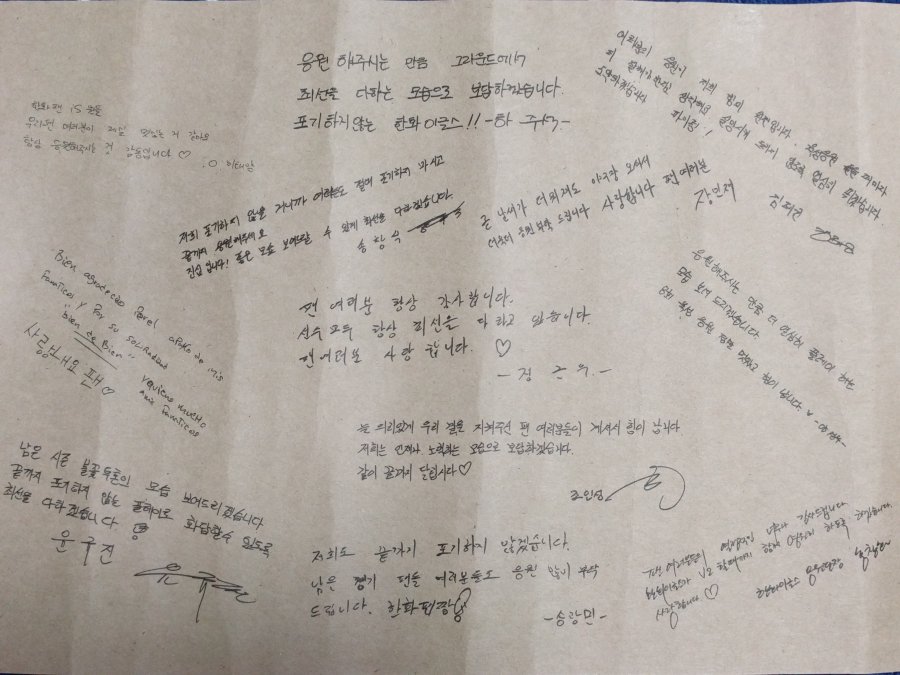 응원해주시는 만큼 그라운드에서
최선을 다하는 모습으로 보답하겠습니다.
포기하지않는 한화이글스!! -하 주석-
여러분의 응원이 저희
한화팬 is 뭔들
우리팬 여러분이 제일 멋있는 거 같아요
항상 응원해주시는 것 감동입니다 ♡
이태양
저희 포기하지 않을 거니까 여러분도 절대 포기하지 마시고
끝까지 응원해주세요
진심입니다! 좋은 모습 보여드릴 수 있게 최선을 다하겠습니다.
송창식
곧 날씨가 더워져도 야구장 오셔서
더욱더 응원 부탁 드립니다 사랑합니다 팬 여러분
장민재
Bien agradecido por el apoyo de mis
Fanaticos y por su solidaridad
"bien te Bien"
y quiero mucho
a mis Fanaticos
사랑해요 팬 ♡
팬 여러분 항상 감사합니다.
선수 모두 항상 최선을 다 하고 있습니다.
팬여러분 사랑 합니다. ♡
-정 근우.-
응원해주시는 만큼 더 열심히 플레이 하는
모습 보여 드리겠습니다.
육성 응원 정말 멋있고 힘이 납니다.
늘 의리있게 우리 곁을 지켜주신 팬 여러분들이 계셔서 힘이 납니다
저희는 언제나 노력하는 모습으로 보답하겠습니다.
같이 끝까지 달립시다♡
조인성
남은 시즌 불꽃투혼의 모습 보여드리겠습니다
끝까지 포기하지 않는 플레이로 화답할수 있도록
최선을 다하겠습니다.
윤규진
저희도 끝까지 포기하지 않겠습니다.
남은 경기 팬들 여러분들도 응원 많이 부탁
드립니다. 한화팬짱
-송광민-
팬 여러분들의 열정적인 너무나 감사드립니다.
한화이글스가 V2 할때까지 함께 영원히 하도록 하겠습니다.
사랑합니다 ♡
한화이글스 응원단장 홍창화